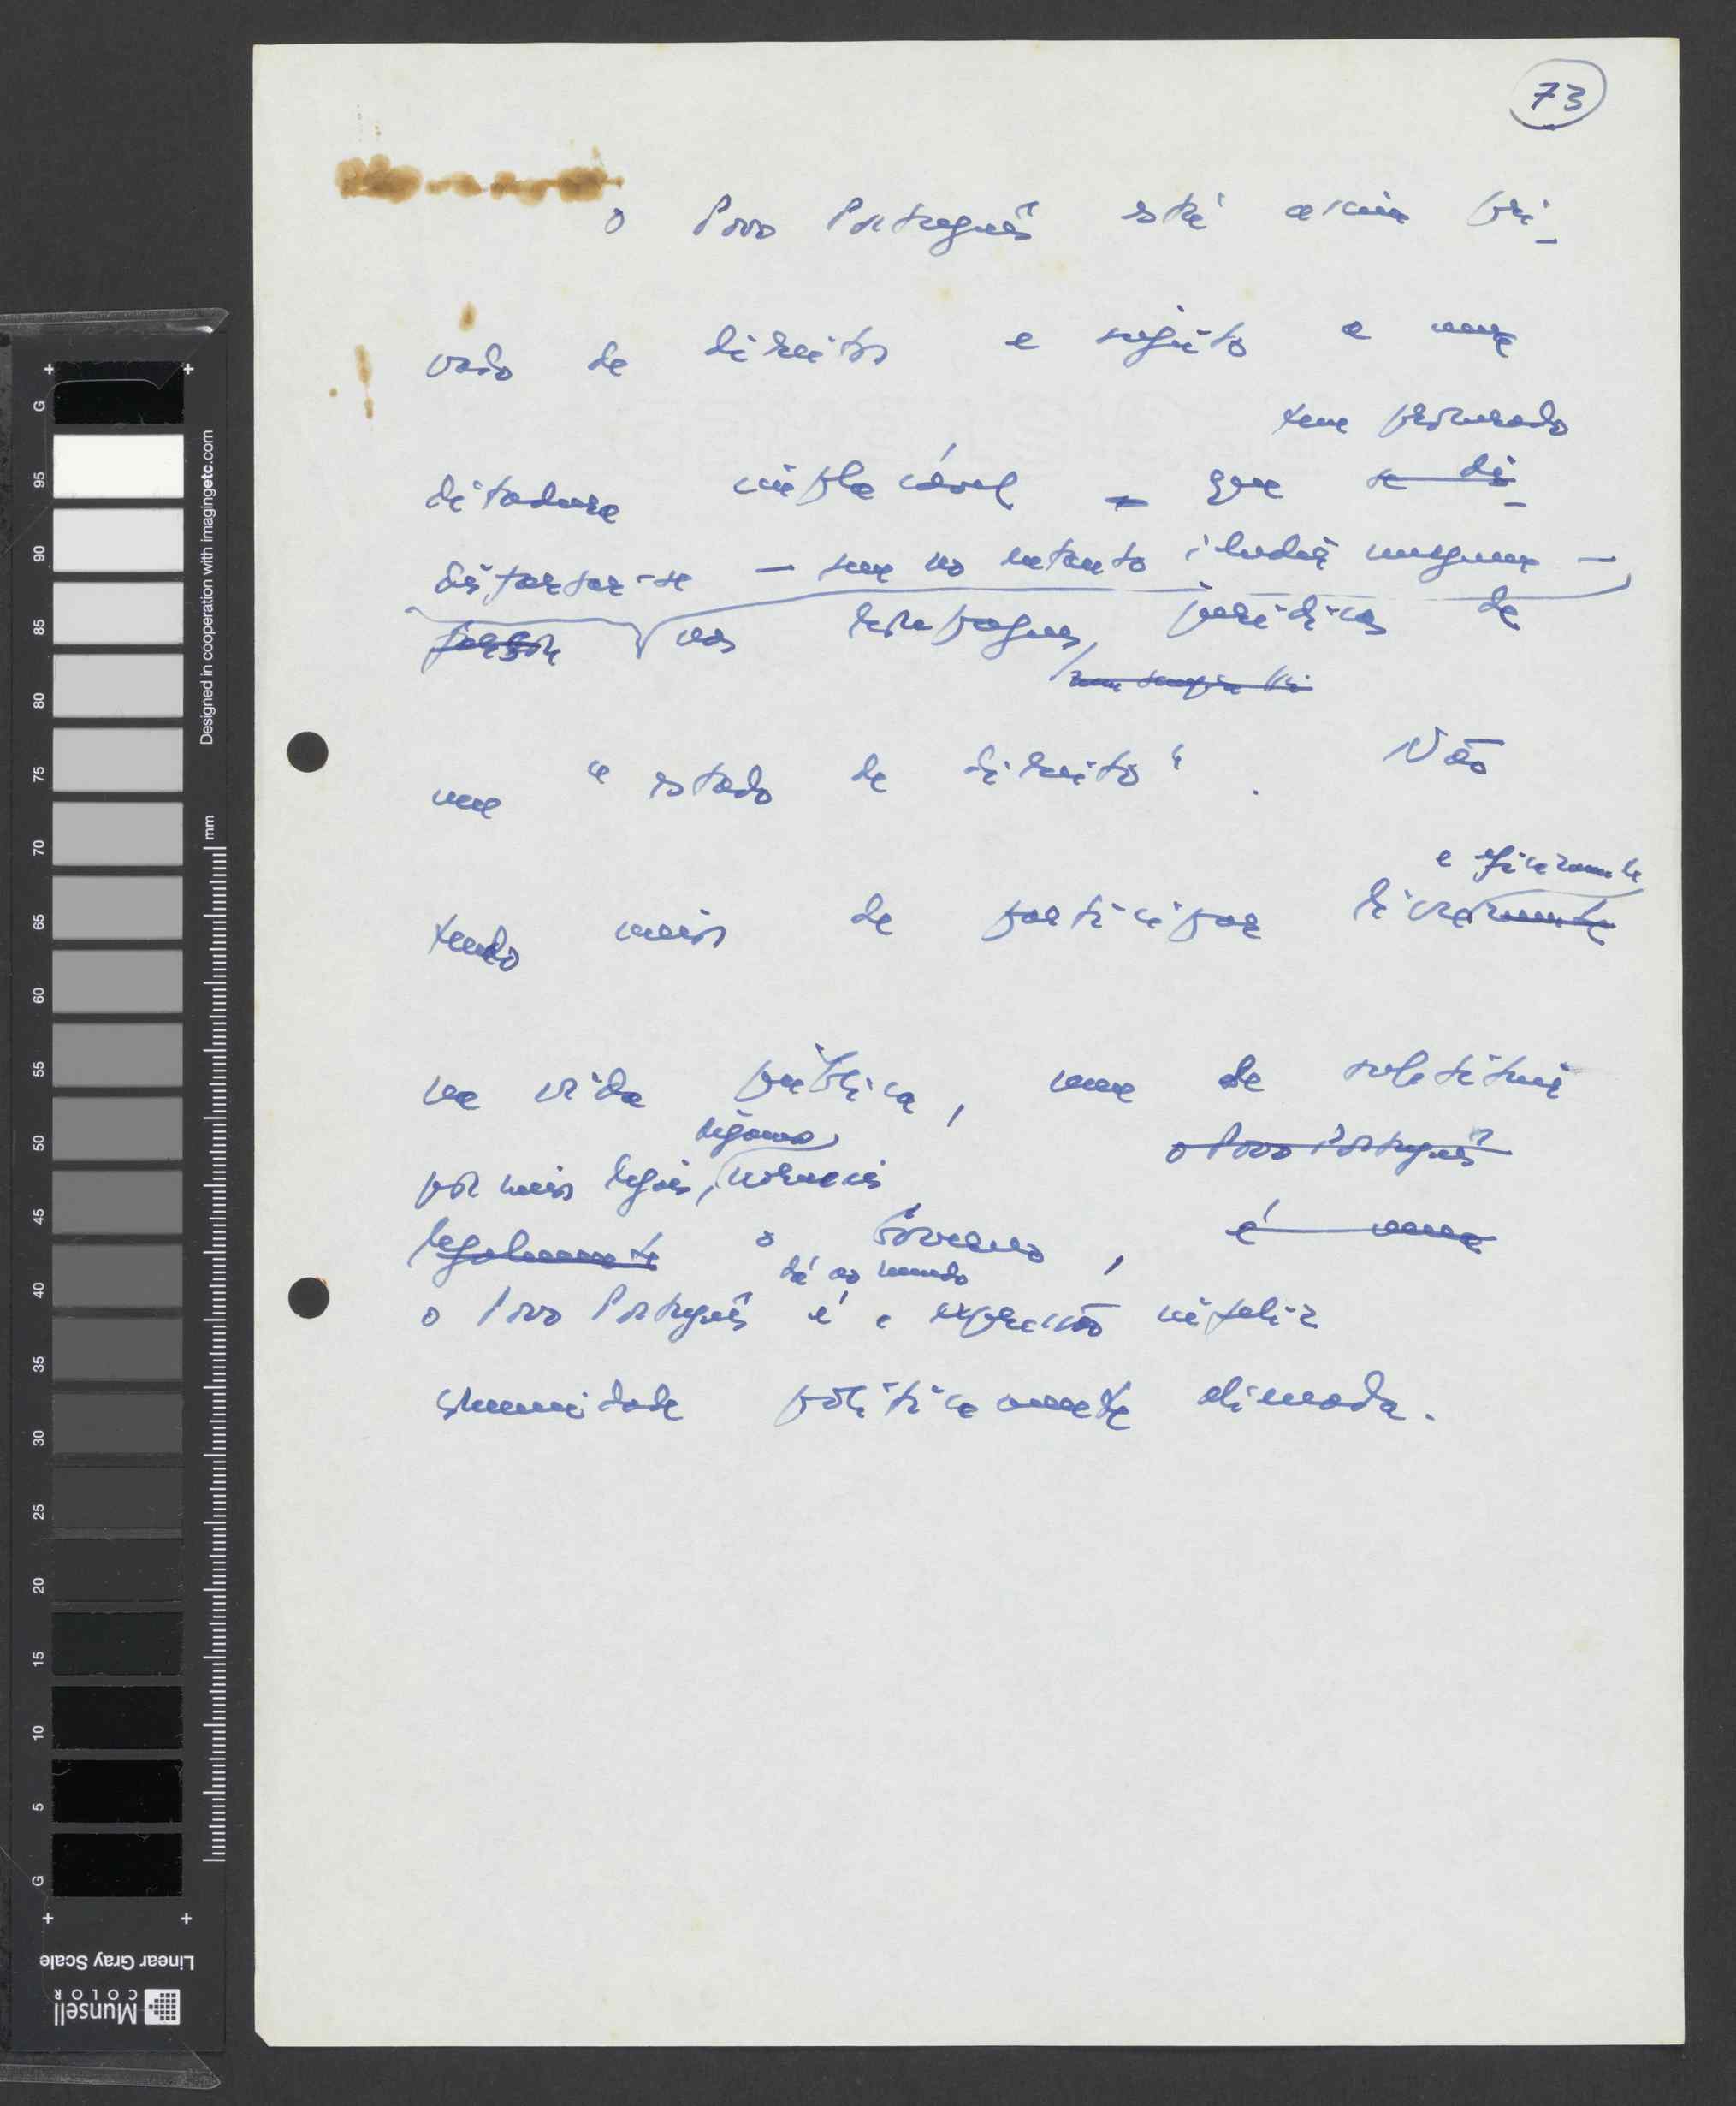 73
O Povo Português está assim pri-
vado de direitos e sujeito a uma
tem procurado
ditadura implacável que se di-
disfarçar-se — sem no entanto iludir ninguém —
nas roupagens jurídicas de
um "estado de direito". Não
e eficazmente
tendo meios de participar livremente
na vida pública, nem de substituir
digamos
o Povo Português
por meios legais, normais
legalmente o Governo, é uma
dá ao mundo
o Povo Português é a expressão infeliz
comunidade politicamente alienada.
G 5 10 15 20 25 30 35 40 45 50 55 60 65 70 75 80 85 90 95 G
mm
Designed in cooperation with imagingetc.com
Linear Gray Scale
Munsell
COLOR